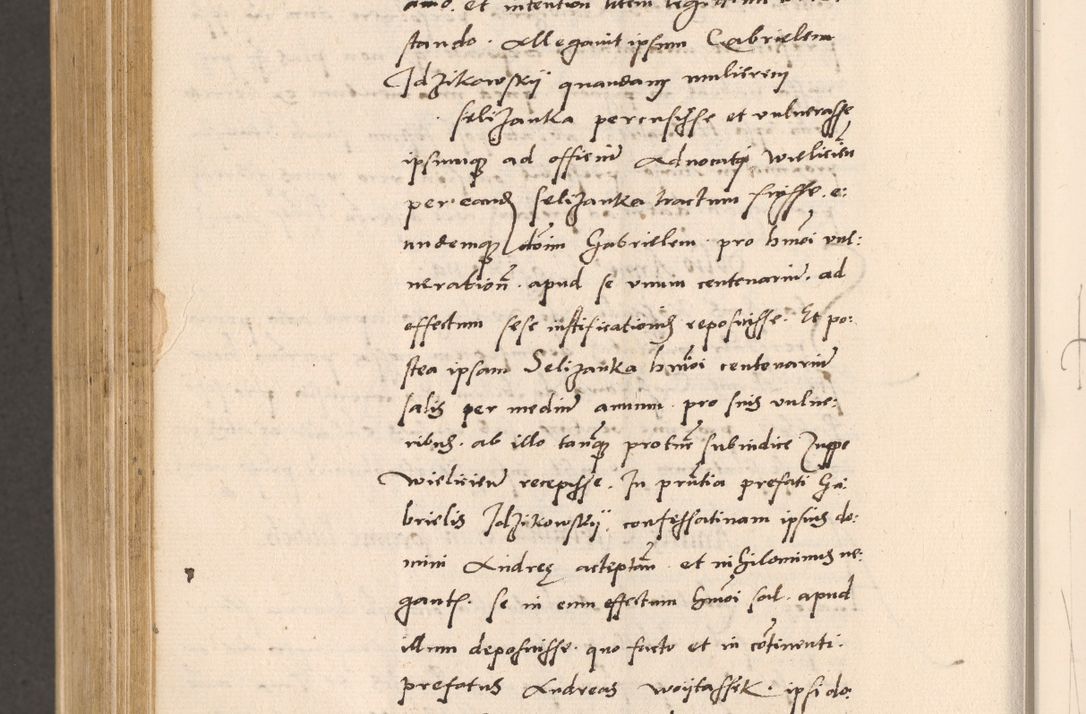 animo. et intention litem legittimi
stando. Allegavit ipsum Gabrielem
Idzikowskÿ quandam mulierem
Selizanka percussisse et vulnerasse
ipsumque ad officiũ Advocatẏ Wieliciẽn
per eand Selizanka tractum fuisse. e:
undemque dõm Gabrielem pro hmõi vul:
neratioñ. apud se unum centenariũ. ad
effectum sese iustificationis reposuisse. Et po:
stea ipsam Selizanka hmõi centenariũ
salis per mediũ annum pro suis vulne:
ribus. ab illo tanq̃ protunc subiudice Juppe
Wielicieñ recepisse. In pñtia prefati Ga:
brielis Idzikowskÿ, confessatinam ipsius do:
mini Andreę acceptañ. et nihilominus ne:
gant. se in eum effectum hmõi sal. apud
illum deposuisse. quo facto et in cõtinenti.
prefatus Andreas Woÿtassek. ipsi do: